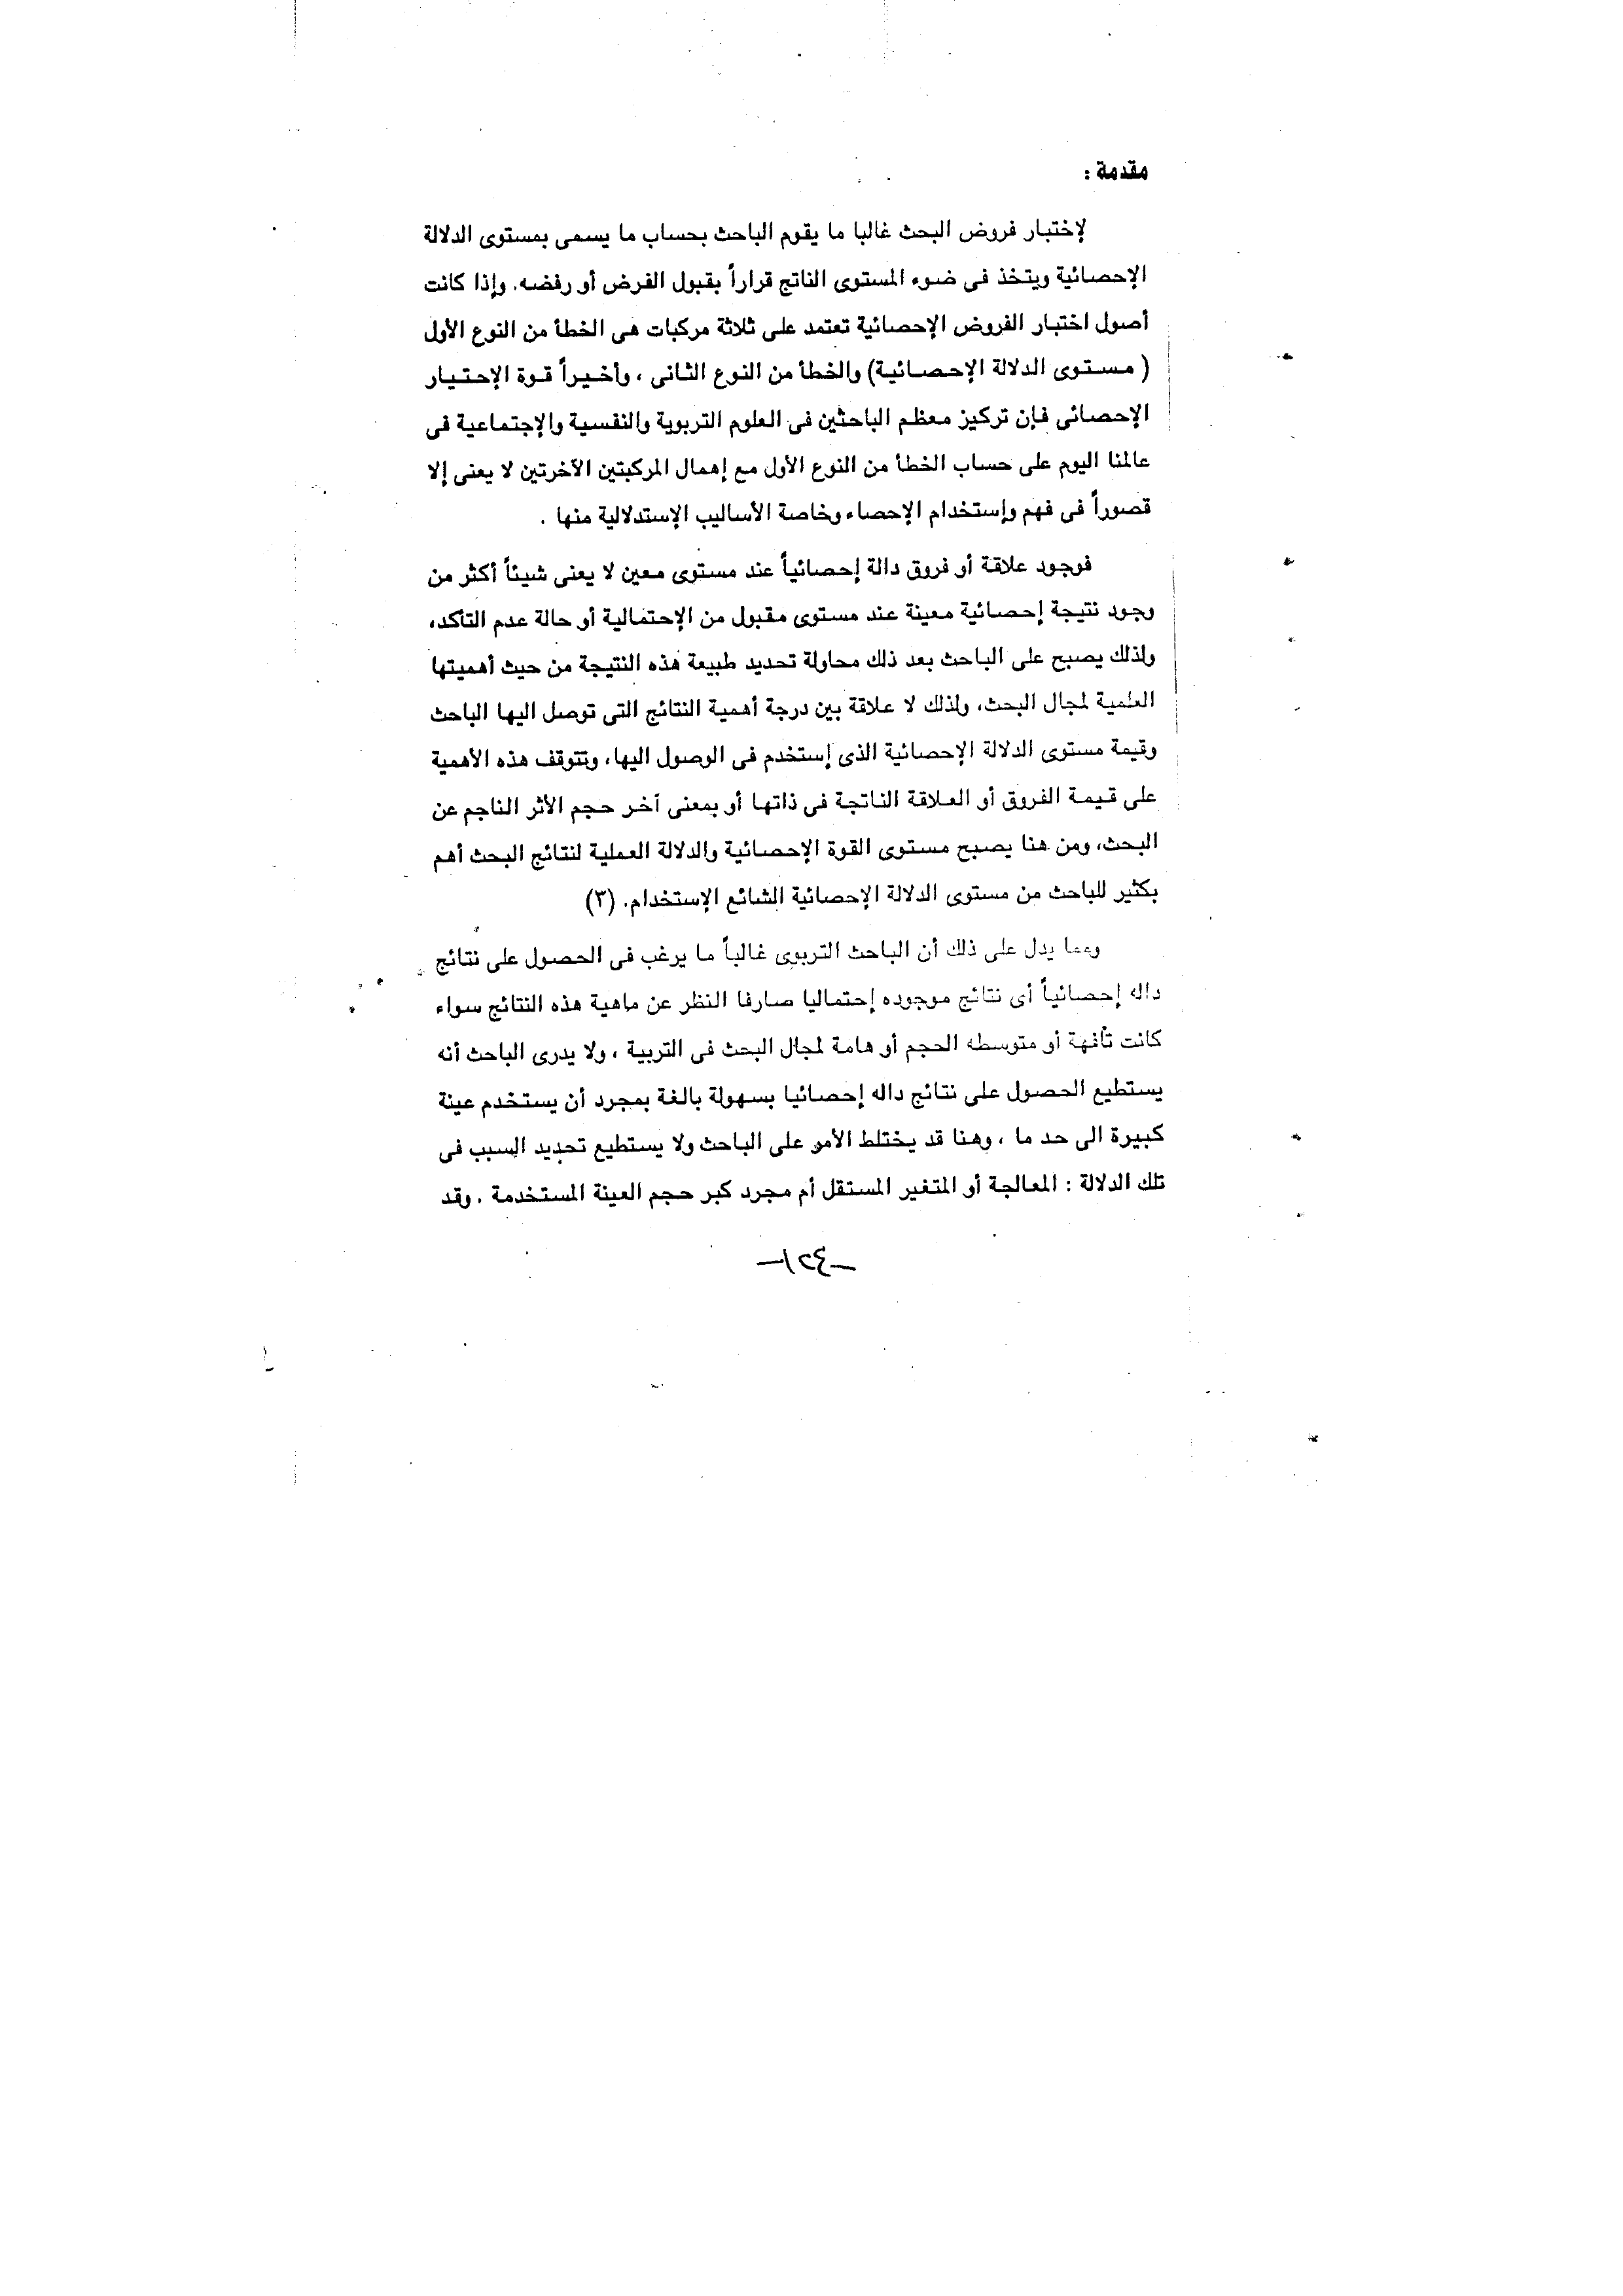 مقدمة :
لإختبار فروض البحث غالبا ما يقوم الباحث بحساب ما يسمى بمستوى الدلالة
الإحصائية ويتخذ فى ضوء المستوى الناتج قراراً بقبول الفرض أو رفضه. وإذا كانت
أصول اختبار الفروض الإحصائية تعتمد على ثلاثة مركبات هى الخطأ من النوع الأول
( مستوى الدلالة الإحصائية) والخطأ من النوع الثانى ، وأخيراً قوة الإختيار
الإحصائى فإن تركيز معظم الباحثين فى العلوم التربوية والنفسية والإجتماعية فى
عالمنا اليوم على حساب الخطأ من النوع الأول مع إهمال المركبتين الآخرتين لا يعنى إلا
قصوراً فى فهم وإستخدام الإحصاء وخاصة الأساليب الإستدلالية منها .
فوجود علاقة أو فروق دالة إحصائياً عند مستوى معين لا يعنى شيئاً أكثر من
وجود نتيجة إحصائية معينة عند مستوى مقبول من الإحتمالية أو حالة عدم التأكد،
ولذلك يصبح على الباحث بعد ذلك محاولة تحديد طبيعة هذه النتيجة من حيث أهميتها
العلمية لمجال البحث، ولذلك لا علاقة بين درجة أهمية النتائج التى توصل اليها الباحث
وقيمة مستوى الدلالة الإحصائية الذى إستخدم فى الوصول اليها، وتتوقف هذه الأهمية
على قيمة الفروق أو العلاقة الناتجة فى ذاتها أو بمعنى آخر حجم الأثر الناجم عن
البحث، ومن هنا يصبح مستوى القوة الإحصائية والدلالة العملية لنتائج البحث أهم
بكثير للباحث من مستوى الدلالة الإحصائية الشائع الإستخدام. (٣)
ومما يدل على ذلك أن الباحث التربوى غالباً ما يرغب فى الحصول على نتائج
داله إحصائياً أى نتائج موجوده إحتماليا صارفا النظر عن ماهية هذه النتائج سواء
كانت تافهة أو متوسطه الحجم أو هامة لمجال البحث فى التربية ، ولا يدرى الباحث أنه
يستطيع الحصول على نتائج داله إحصائيا بسهولة بالغة بمجرد أن يستخدم عينة
كبيرة الى حد ما ، وهنا قد يختلط الأمو على الباحث ولا يستطيع تحديد السبب فى
تلك الدلالة : المعالجة أو المتغير المستقل أم مجرد كبر حجم العينة المستخدمة . وقد